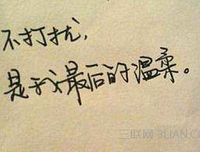 不打扰，
是我最后的温柔。
三联网 3LIAN.COM